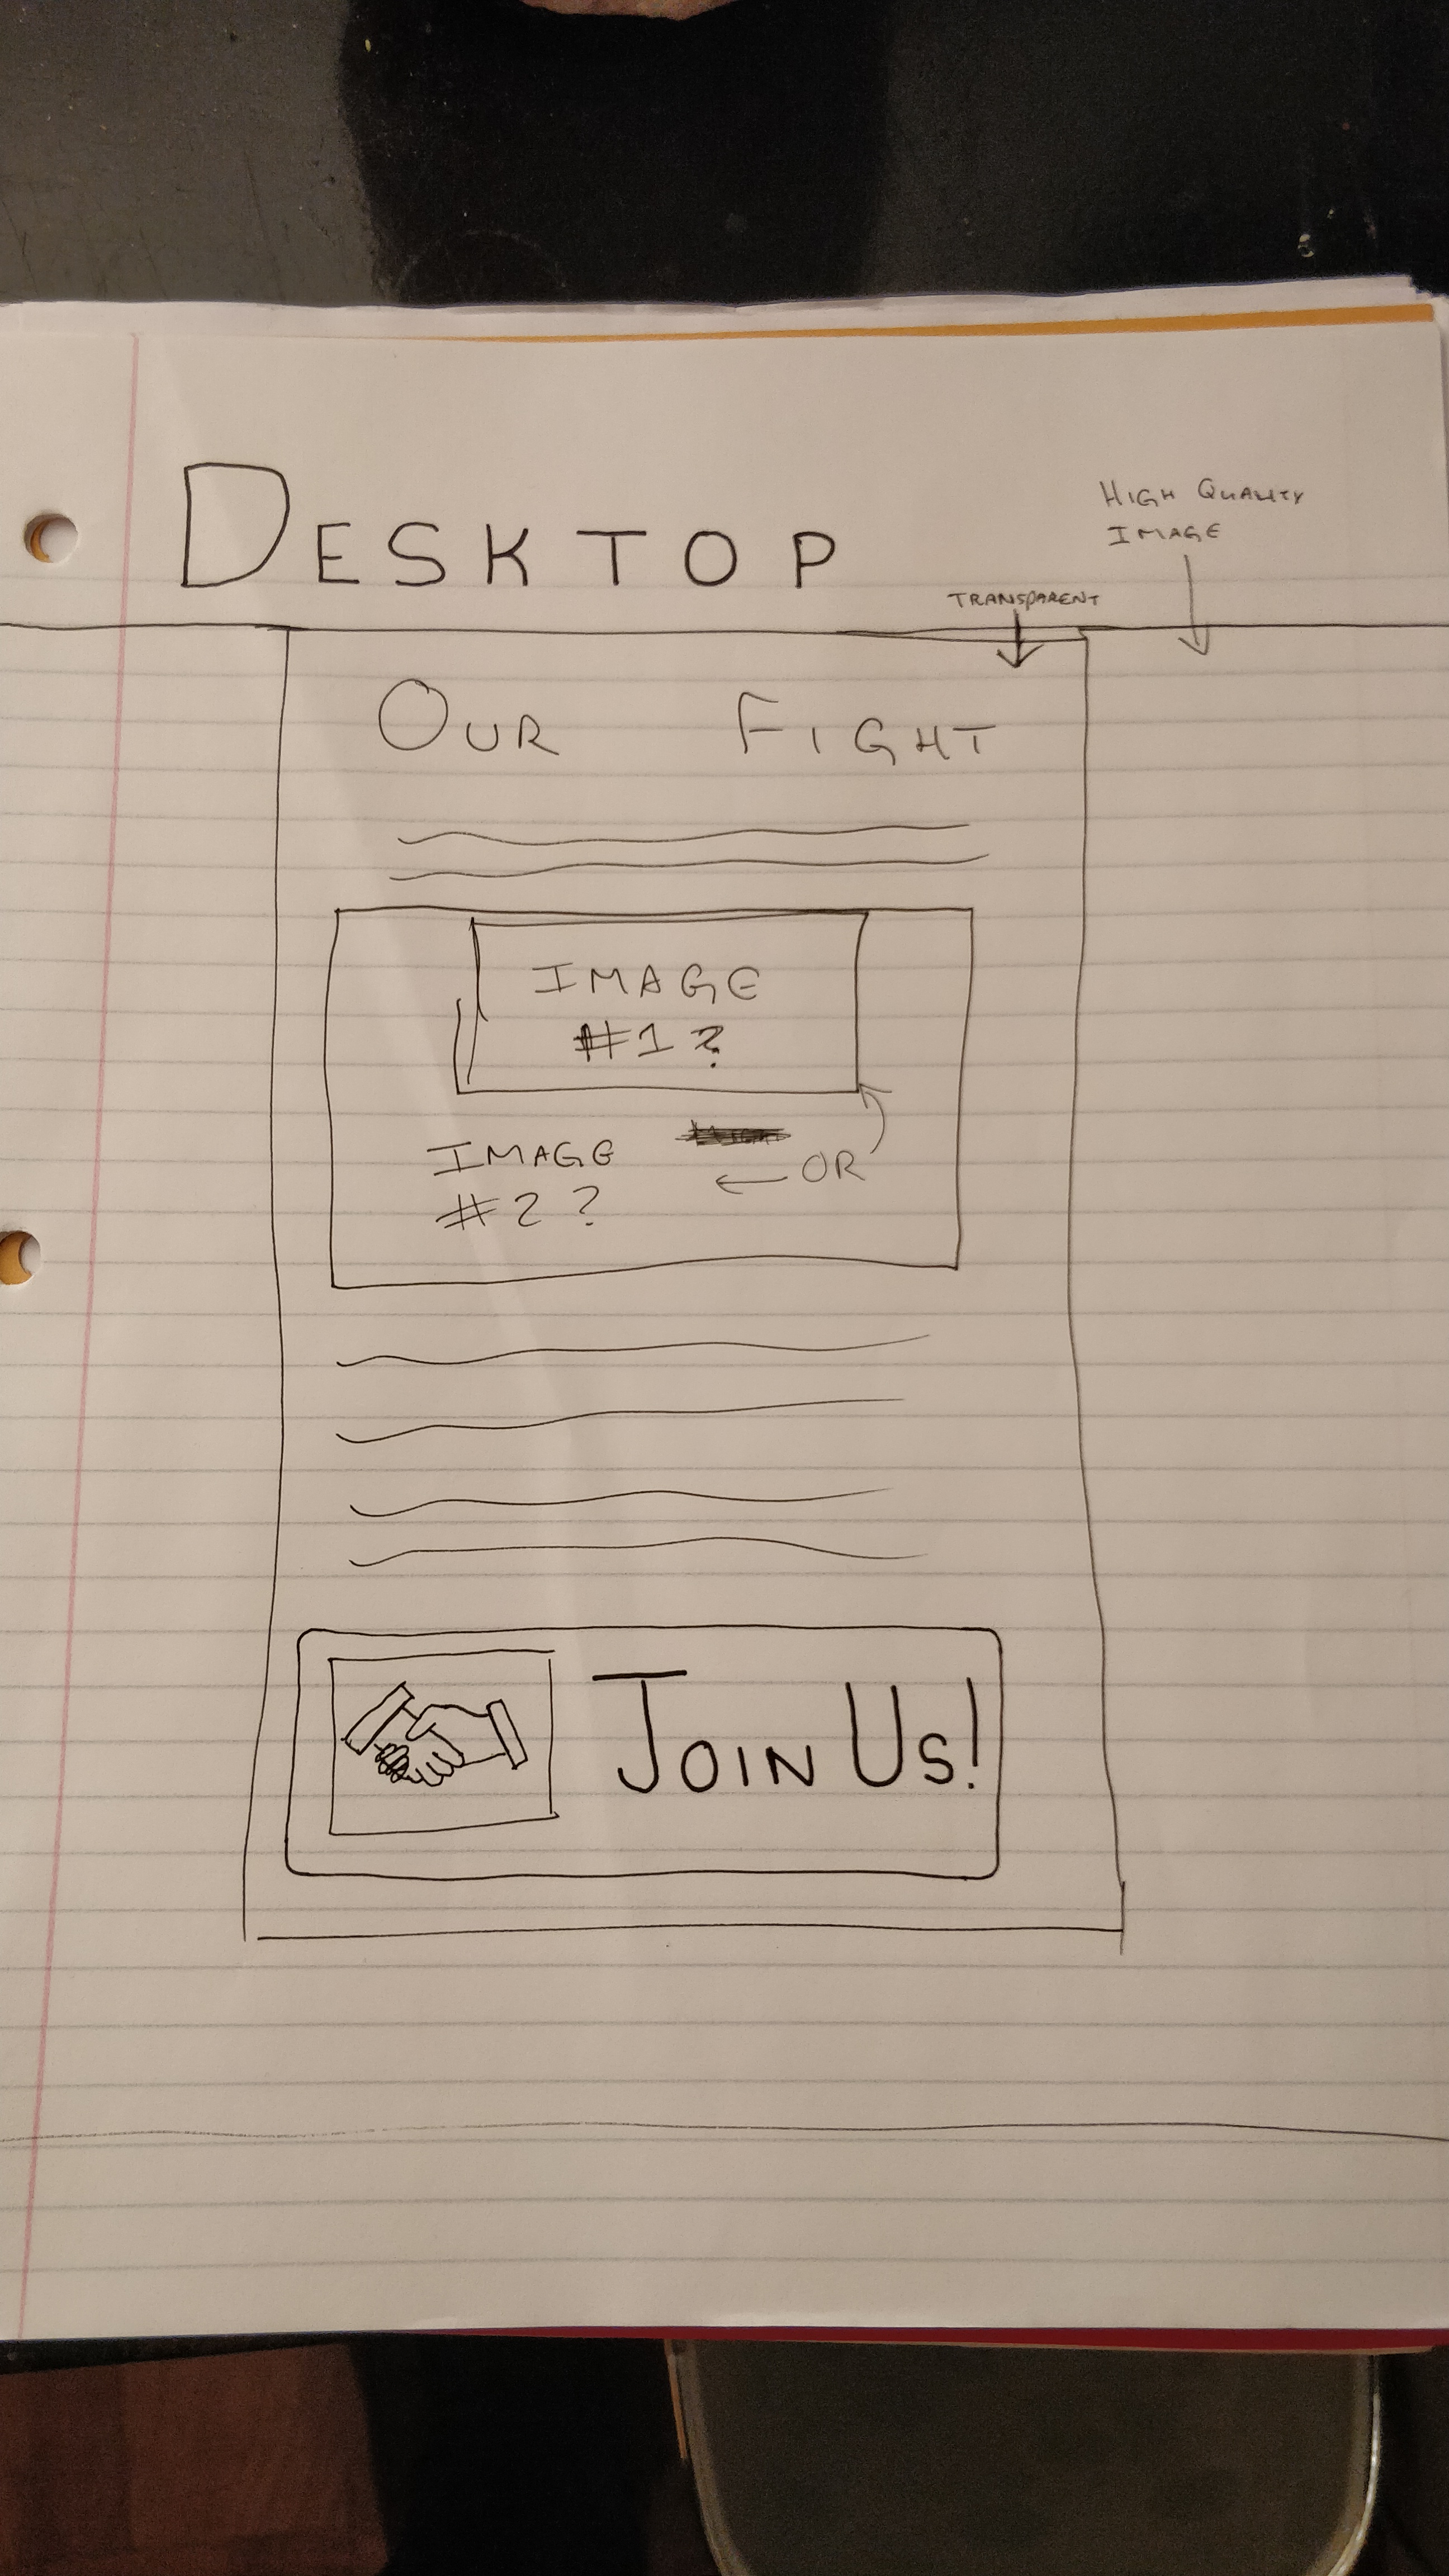 DESKTOP
HIGH QUALITY
IMAGE
TRANSPARENT
OUR FIGHT
IMAGE
#1?
IMAGE
#2?
← OR
JOIN US!